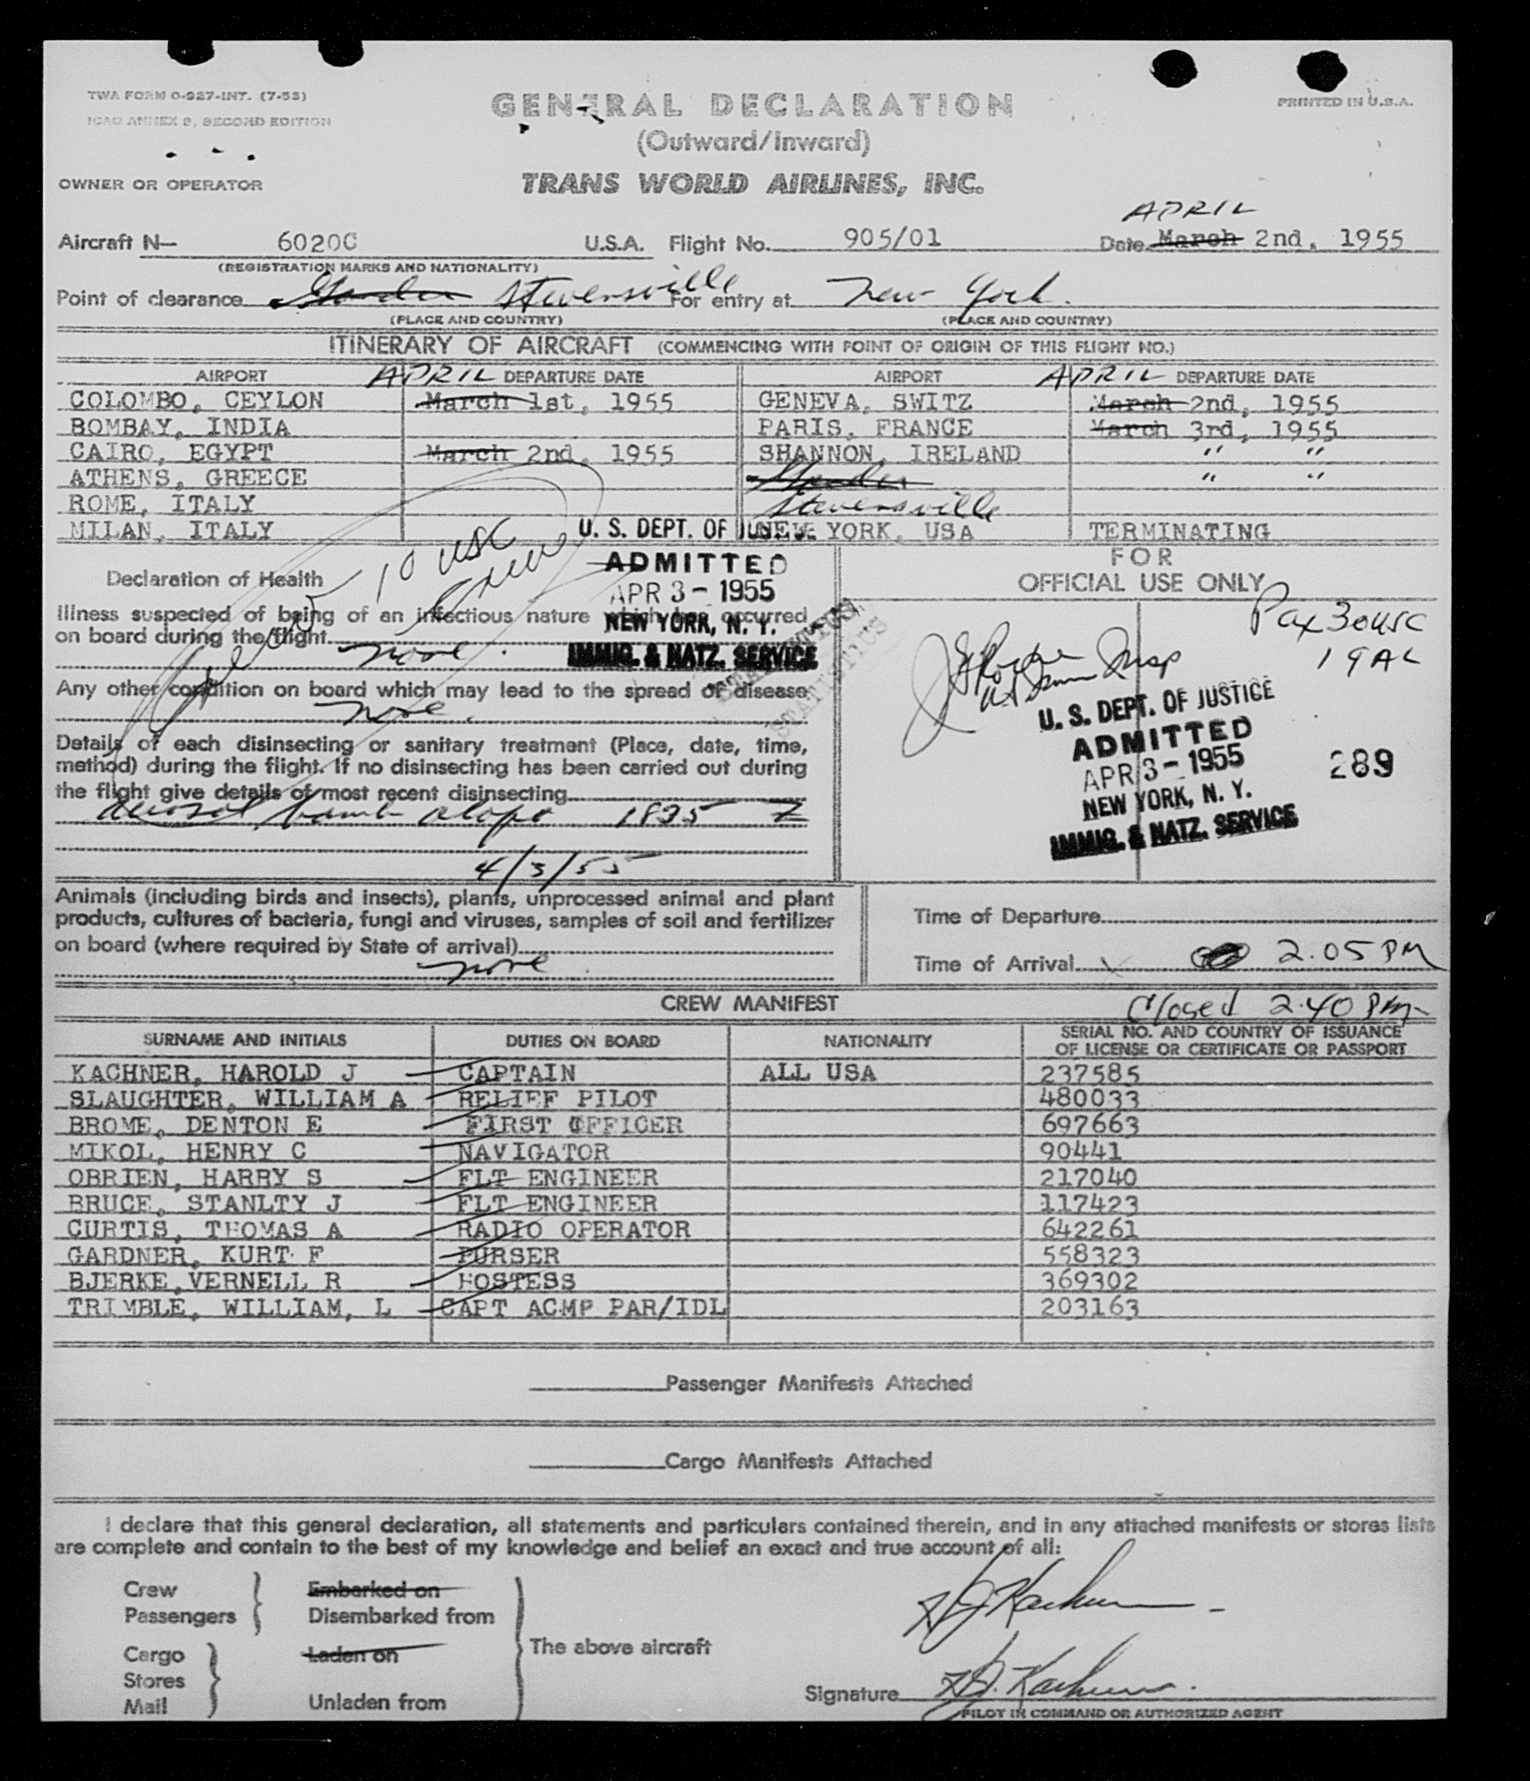 TWA FORM O-927-INT. (7-53)
ICAO ANNEX 9, SECOND EDITION
GENERAL DECLARATION
PRINTED IN U.S.A.
(Outward/Inward)
OWNER OR OPERATOR
TRANS WORLD AIRLINES, INC.
APRIL
Aircraft N— 6020C U.S.A. Flight No. 905/01 Date March 2nd, 1955
(REGISTRATION MARKS AND NATIONALITY)
Point of clearance Gander Stevensville For entry at New York.
(PLACE AND COUNTRY) (PLACE AND COUNTRY)
ITINERARY OF AIRCRAFT (COMMENCING WITH POINT OF ORIGIN OF THIS FLIGHT NO.)
AIRPORT APRIL DEPARTURE DATE AIRPORT APRIL DEPARTURE DATE
COLOMBO, CEYLON March 1st, 1955 GENEVA, SWITZ March 2nd, 1955
BOMBAY, INDIA PARIS, FRANCE March 3rd, 1955
CAIRO, EGYPT March 2nd, 1955 SHANNON, IRELAND " "
ATHENS, GREECE Gander " "
ROME, ITALY Stevensville
MILAN, ITALY NEW YORK, USA TERMINATING
U. S. DEPT. OF JUSTICE
ADMITTED
APR 3 - 1955
NEW YORK, N. Y.
IMMIG. & NATZ. SERVICE
10 USC
Crew
Declaration of Health
Illness suspected of being of an infectious nature which has occurred
on board during the flight
none.
Any other condition on board which may lead to the spread of disease
none.
Details of each disinsecting or sanitary treatment (Place, date, time,
method) during the flight. If no disinsecting has been carried out during
the flight give details of most recent disinsecting
aerosol bomb 1835 Z
4/3/55
FOR
OFFICIAL USE ONLY
Pax 30 USC
19 AL
U. S. DEPT. OF JUSTICE
ADMITTED
APR 3 - 1955
NEW YORK, N. Y.
IMMIG. & NATZ. SERVICE
289
Animals (including birds and insects), plants, unprocessed animal and plant
products, cultures of bacteria, fungi and viruses, samples of soil and fertilizer
on board (where required by State of arrival)
none.
Time of Departure
Time of Arrival 2.05 PM
CREW MANIFEST Closed 2.40 PM
SURNAME AND INITIALS DUTIES ON BOARD NATIONALITY SERIAL NO. AND COUNTRY OF ISSUANCE
OF LICENSE OR CERTIFICATE OR PASSPORT
KACHNER, HAROLD J CAPTAIN ALL USA 237585
SLAUGHTER, WILLIAM A RELIEF PILOT 480033
BROME, DENTON E FIRST OFFICER 697663
MIKOL, HENRY C NAVIGATOR 90441
OBRIEN, HARRY S FLT ENGINEER 217040
BRUCE, STANLTY J FLT ENGINEER 117423
CURTIS, THOMAS A RADIO OPERATOR 642261
GARDNER, KURT F PURSER 558323
BJERKE, VERNELL R HOSTESS 369302
TRIMBLE, WILLIAM, L CAPT ACMP PAR/IDL 203163
Passenger Manifests Attached
Cargo Manifests Attached
I declare that this general declaration, all statements and particulars contained therein, and in any attached manifests or stores lists
are complete and contain to the best of my knowledge and belief an exact and true account of all:
Crew Embarked on
Passengers Disembarked from
The above aircraft
Cargo Laden on
Stores
Mail Unladen from
H J Kachner
Signature H J. Kachner.
PILOT IN COMMAND OR AUTHORIZED AGENT